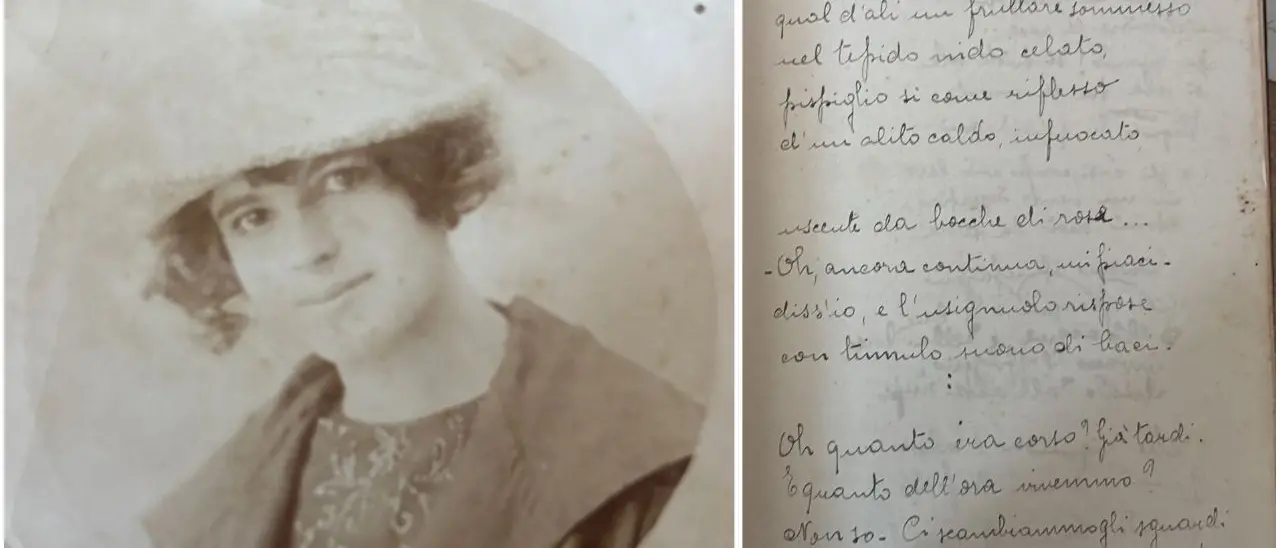 qual d'ali un frullare sommesso
nel tepido nido celato,
pispiglio sì come riflesso
d'un alito caldo, infuocato,
uscente da bocche di rosa...
- Oh, ancora continua, mi piaci -
diss'io, e l'usignuolo rispose
con tinnulo suono di baci.
:
Oh quanto era corso? Già tardi.
E quanto dell'ora vivemmo?
Non so - Ci scambiammo gli sguardi